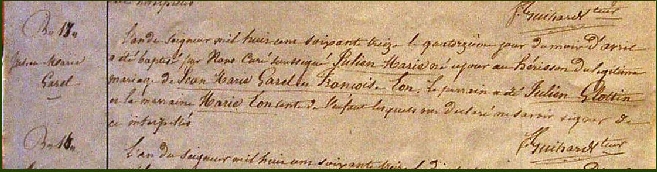 J. Guihard teur
Bu 18u
Julien Marie
Garel
L'an du seigneur mil huit cent soixante treize le quatorzième jour du mois d'avril
a été baptisé par Nous Curé soussigné Julien Marie né ce jour au Hérisson du légitime
mariage de Jean Marie Garel et Françoise Eon. Le parrain a été Julien Glottin
et la marraine Marie Eon tante de l'enfant lesquels ont déclaré ne savoir signer de
ce interpellés
J. Guihard teur
Bu 18u
L'an du seigneur mil huit cent soixante treize le